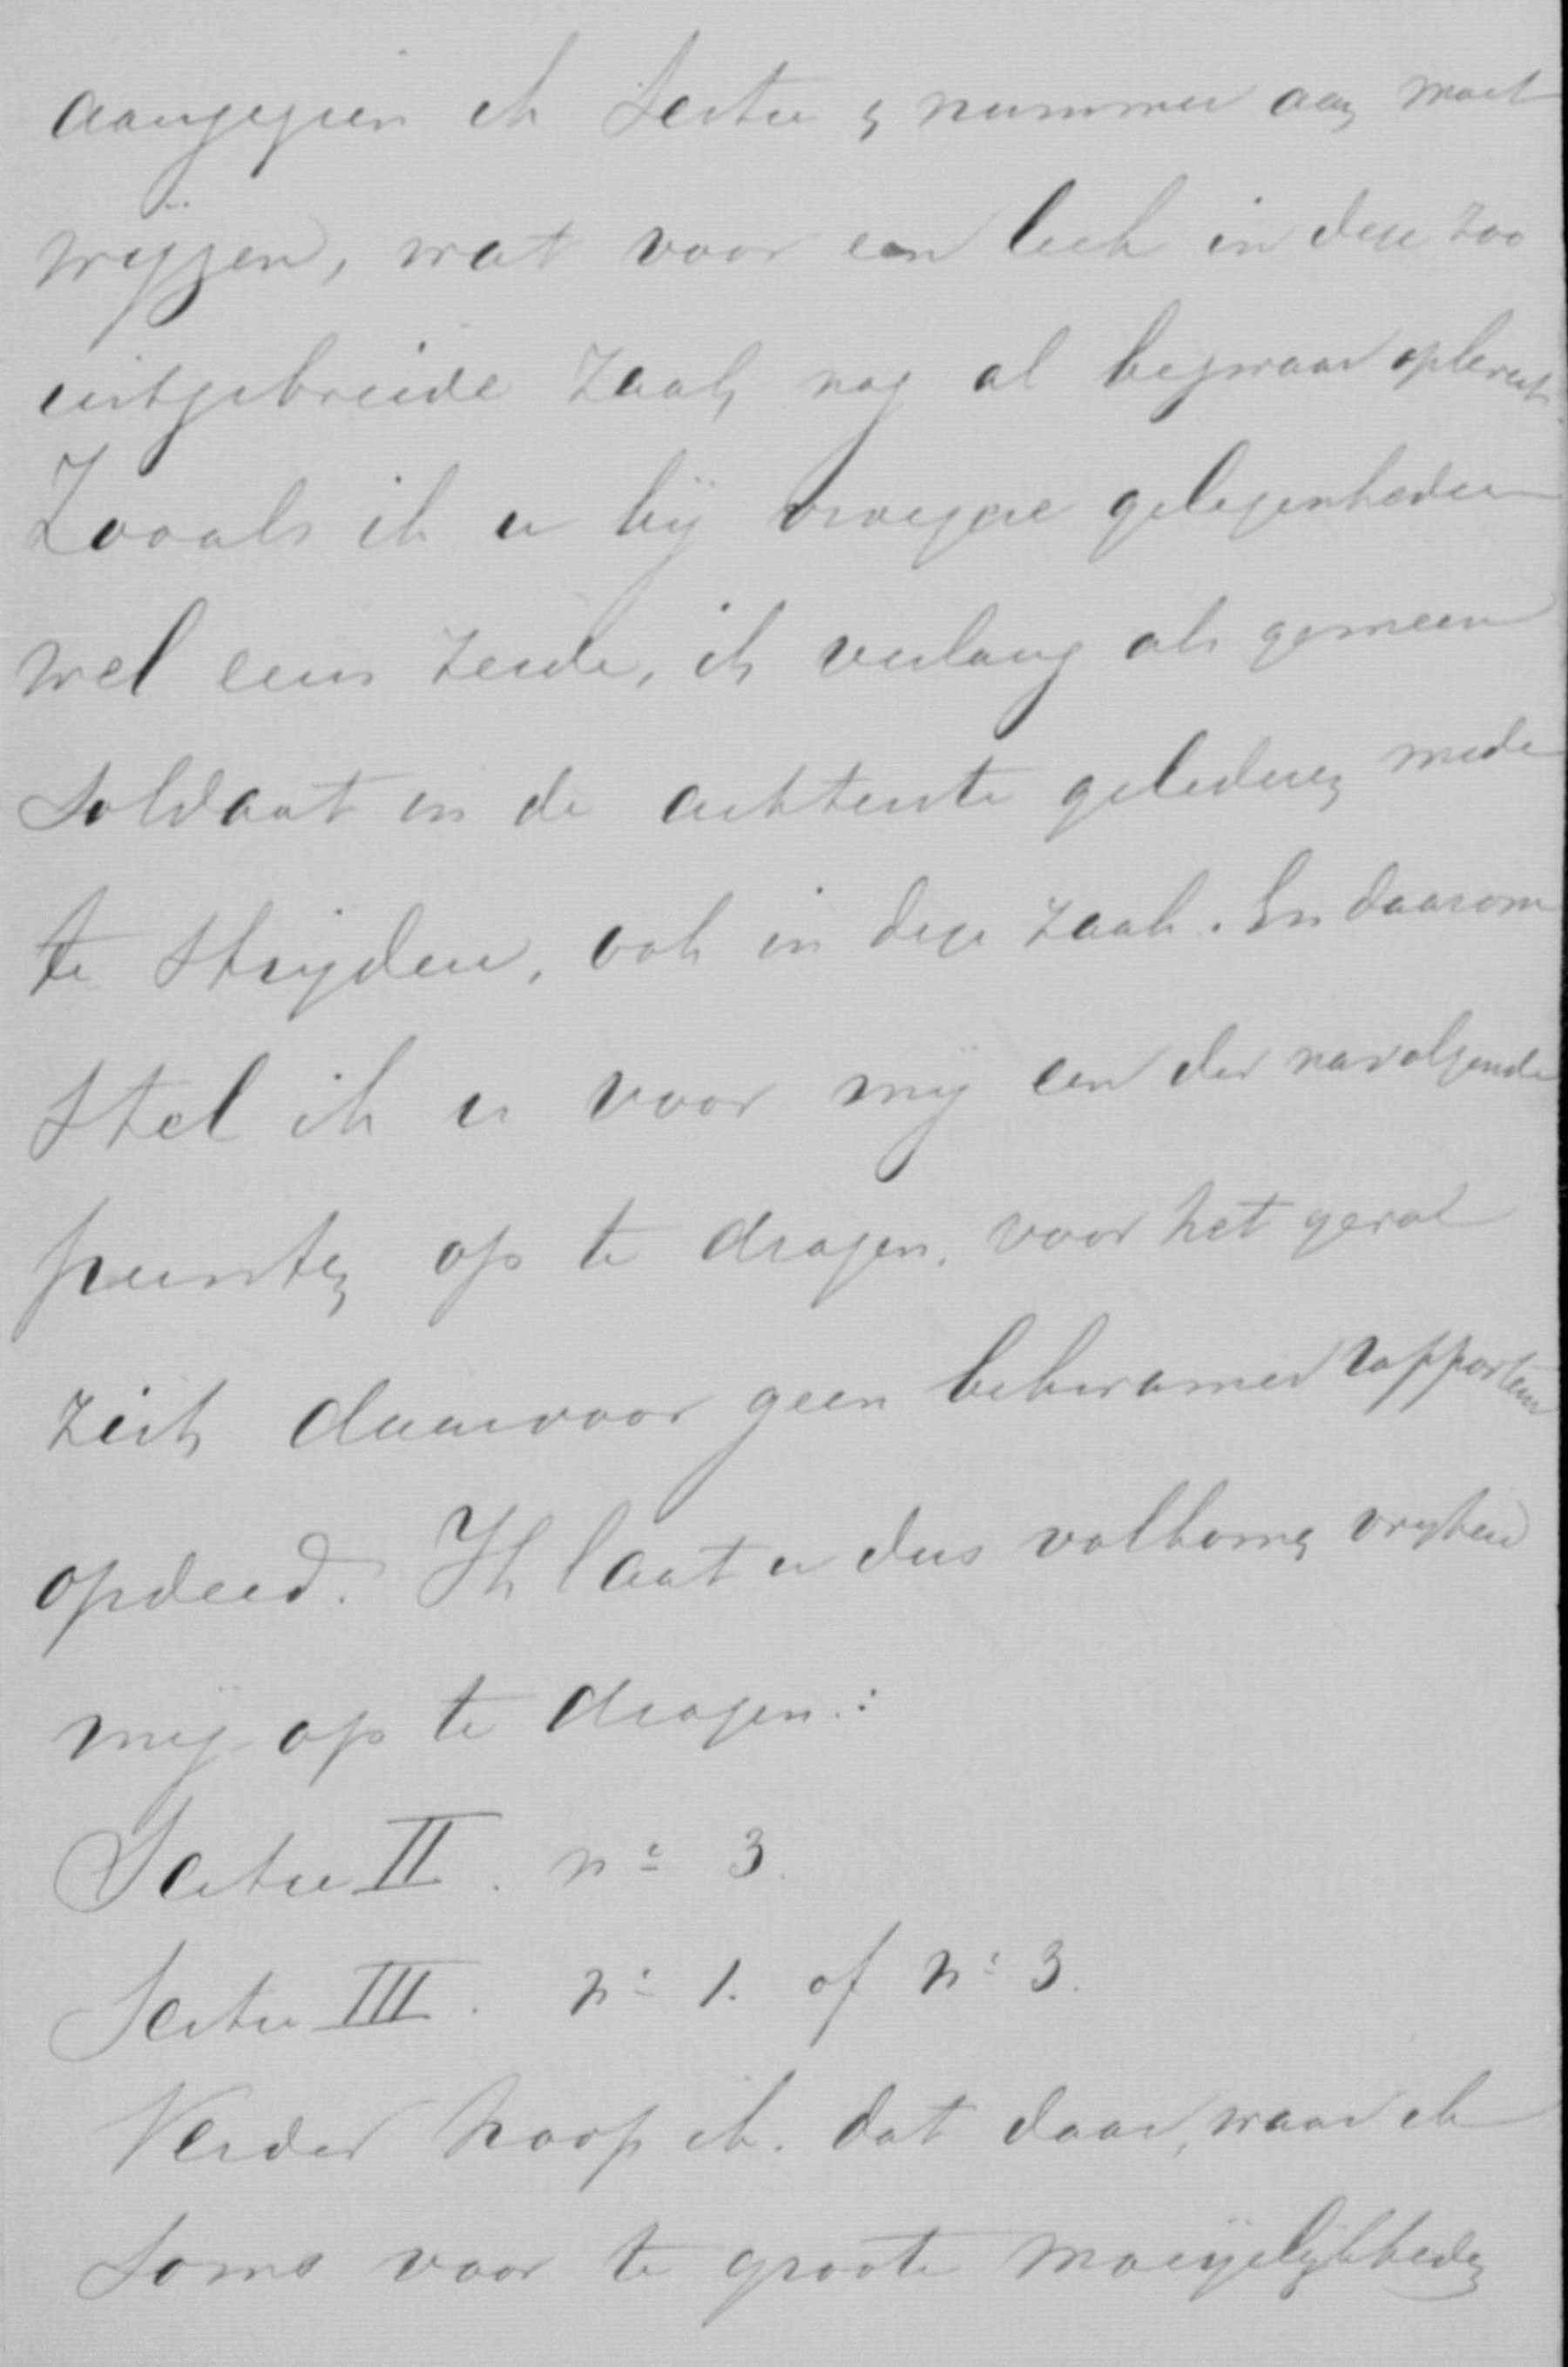 aangezien ik Sectie & nummer aan moet
wijzen, wat voor een leek in deze zoo
uitgebreide zaak, nog al bezwaar oplevert.
Zooals ik u bij vroegere gelegenheden
wel eens zeide, ik verlang als gemeen
soldaat in de achterste gelederen mede
te strijden, ook in deze zaak. En daarom
stel ik u voor mij een der navolgende
punten op te dragen, voor het geval
zich daarvoor geen bekwamer rapporteur
opdeed. Ik laat u dus volkomen vrijheid
mij op te dragen:
Sectie II. no 3.
Sectie III. no 1. of no 3.
Verder hoop ik. dat daar, waar ik
soms voor te groote moeijelijkheden